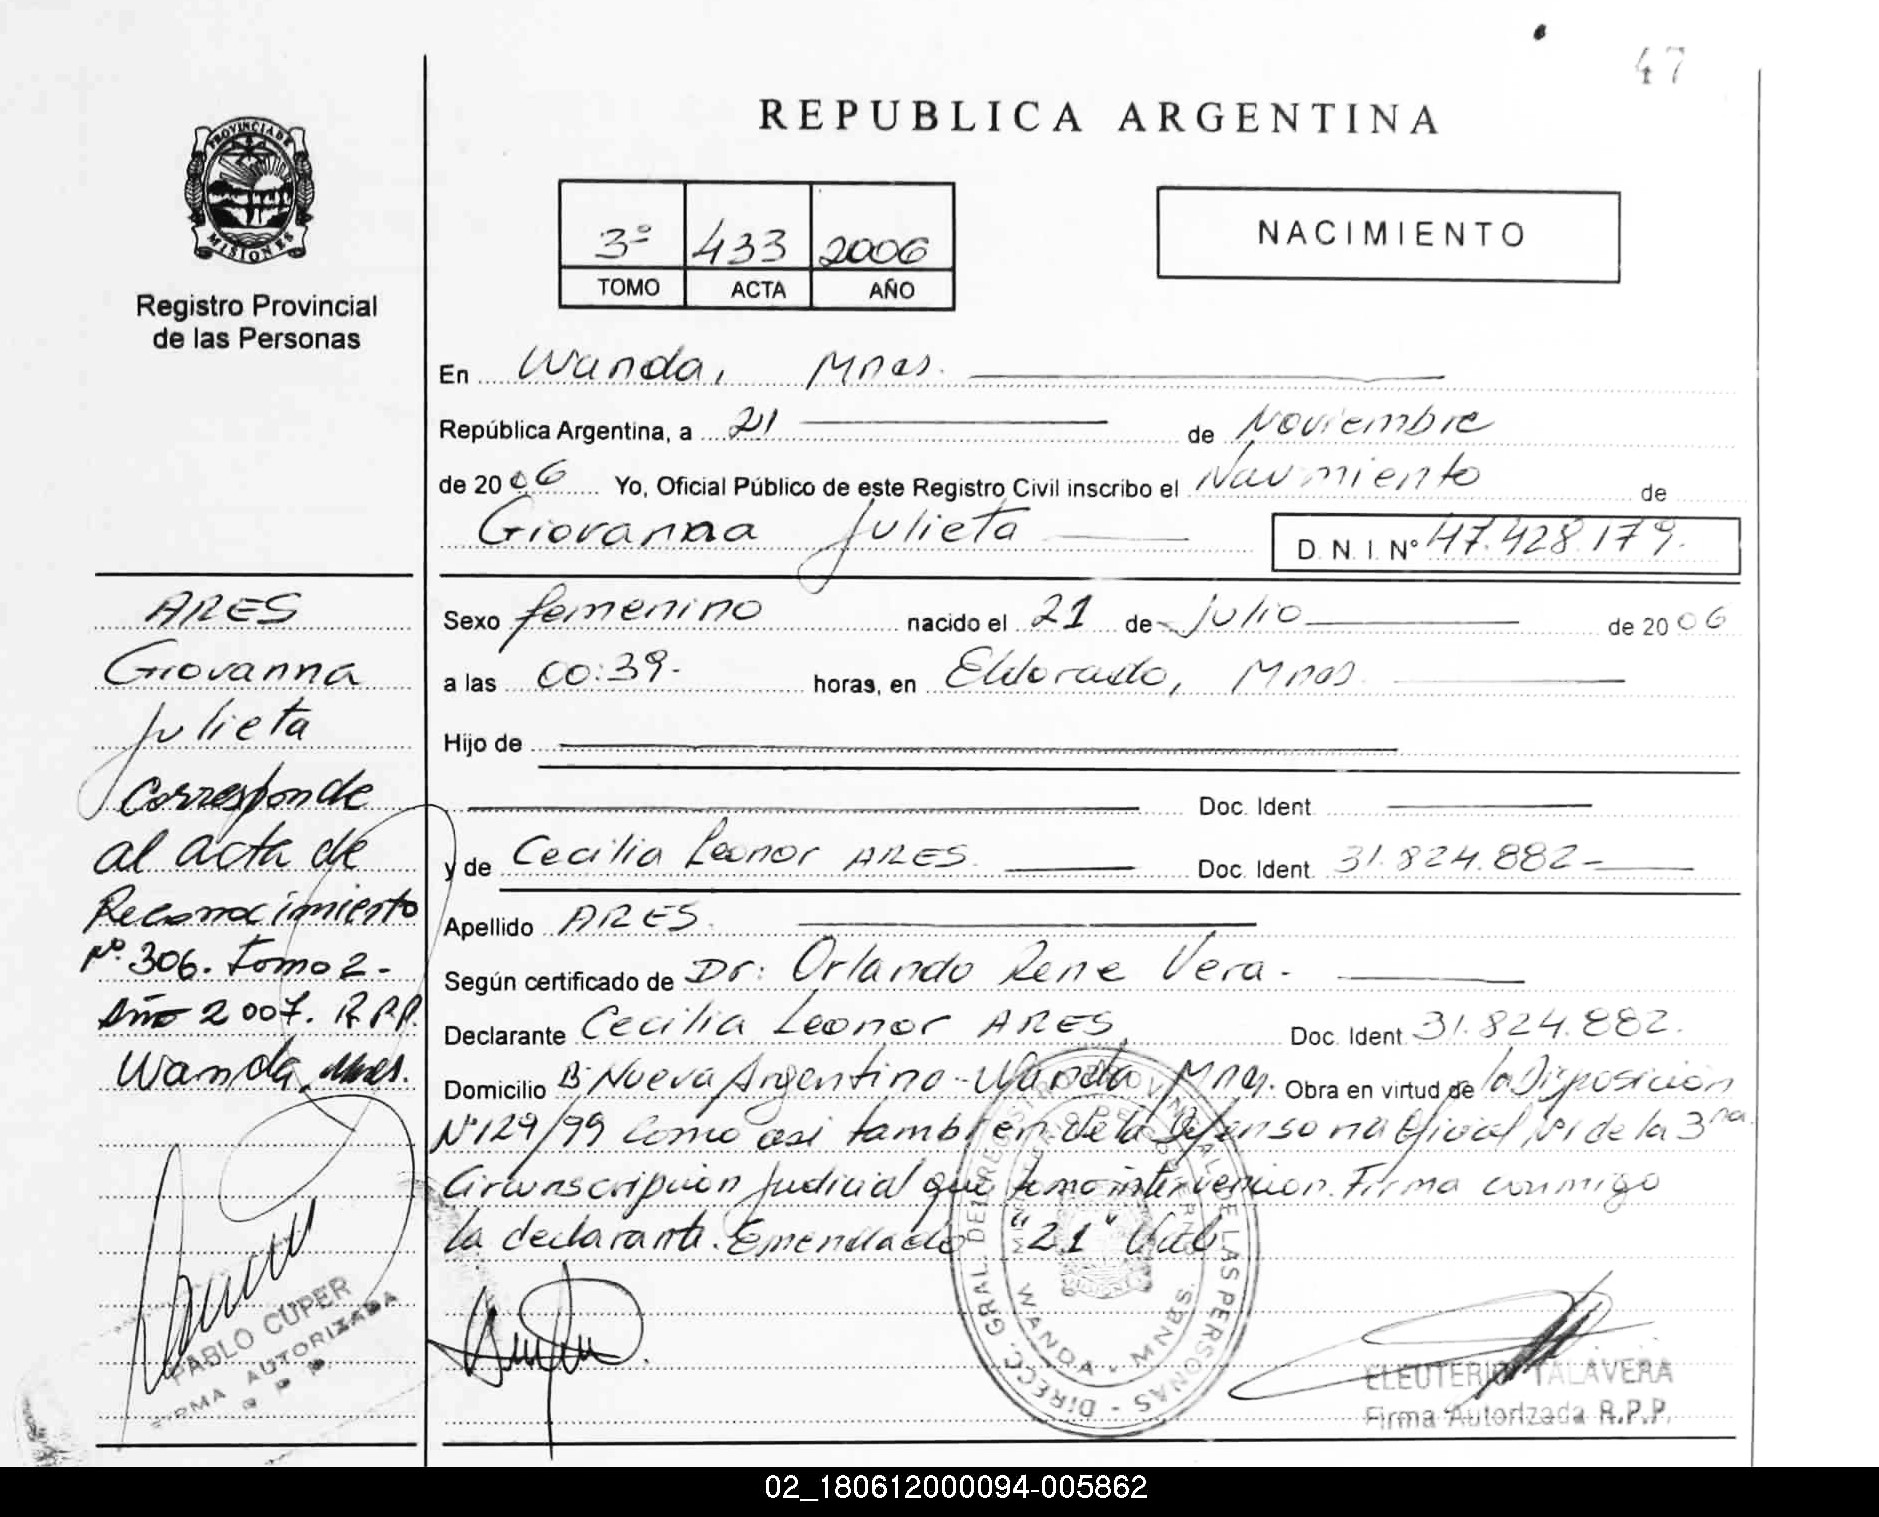 47
REPUBLICA ARGENTINA
PROVINCIA DE
MISIONES
Registro Provincial
de las Personas
3º 433 2006
TOMO ACTA AÑO
NACIMIENTO
En Wanda, Mnes.
República Argentina, a 21 de Noviembre
de 2006 Yo, Oficial Público de este Registro Civil inscribo el Nacimiento de
Giovanna Julieta D. N. I. Nº 47.428.179.
Sexo femenino nacido el 21 de julio de 2006
a las 00:39.- horas, en Eldorado, Mnes.
Hijo de
Doc. Ident.
y de Cecilia Leonor ARES. Doc. Ident. 31.824.882-
Apellido ARES.
Según certificado de Dr: Orlando Rene Vera.-
Declarante Cecilia Leonor ARES Doc. Ident. 31.824.882.
Domicilio Bº Nueva Argentina - Wanda Mnes. Obra en virtud de la Disposición
Nº 129/99 como asi tambien de la Defensoria Oficial Nº 1 de la 3ra
Circunscripcion Judicial que tomo intervencion. Firma conmigo
la declarante. Emendado "21" Vale
ARES
Giovanna
Julieta
Corresponde
al acta de
Reconocimiento
Nº 306. Tomo 2-
Año 2007. R.P.P.
Wanda, Mnes.
PABLO CUPER
FIRMA AUTORIZADA
R P P
DIRECC. GRAL. DEL REGISTRO PROVINCIAL DE LAS PERSONAS
WANDA - MNES
ELEUTERIO TALAVERA
Firma Autorizada R.P.P.
02_180612000094-005862